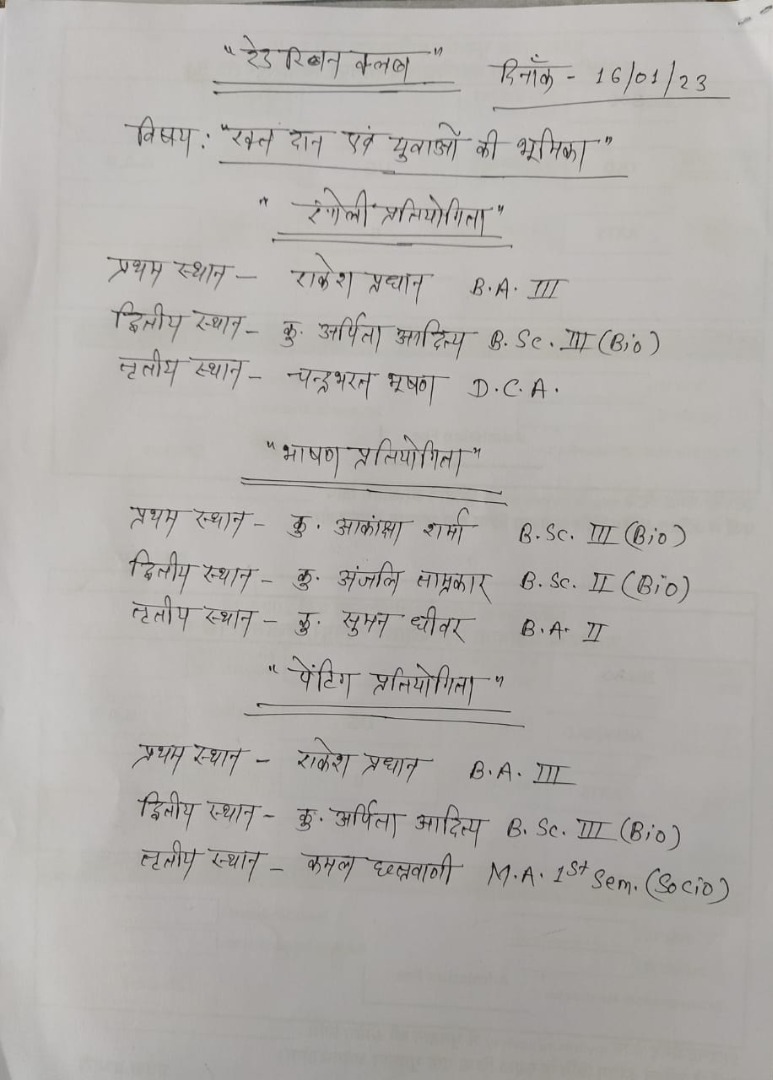 "रेड रिबन क्लब" दिनाँक - 16/01/23
विषय : "रक्त दान एवं युवाओं की भूमिका"
" रंगोली प्रतियोगिता"
प्रथम स्थान - राकेश प्रधान B.A. III
द्वितीय स्थान - कु. अर्पिता आदित्य B.Sc. III (Bio)
तृतीय स्थान - चन्द्रभरत भूषण D.C.A.
"भाषण प्रतियोगिता"
प्रथम स्थान - कु. आकांक्षा शर्मा B.Sc. III (Bio)
द्वितीय स्थान - कु. अंजलि ताम्रकार B.Sc. II (Bio)
तृतीय स्थान - कु. सुमन धीवर B.A. II
"पेंटिग प्रतियोगिता"
प्रथम स्थान - राकेश प्रधान B.A. III
द्वितीय स्थान - कु. अर्पिता आदित्य B.Sc. III (Bio)
तृतीय स्थान - कमल M.A. 1st Sem. (Socio)